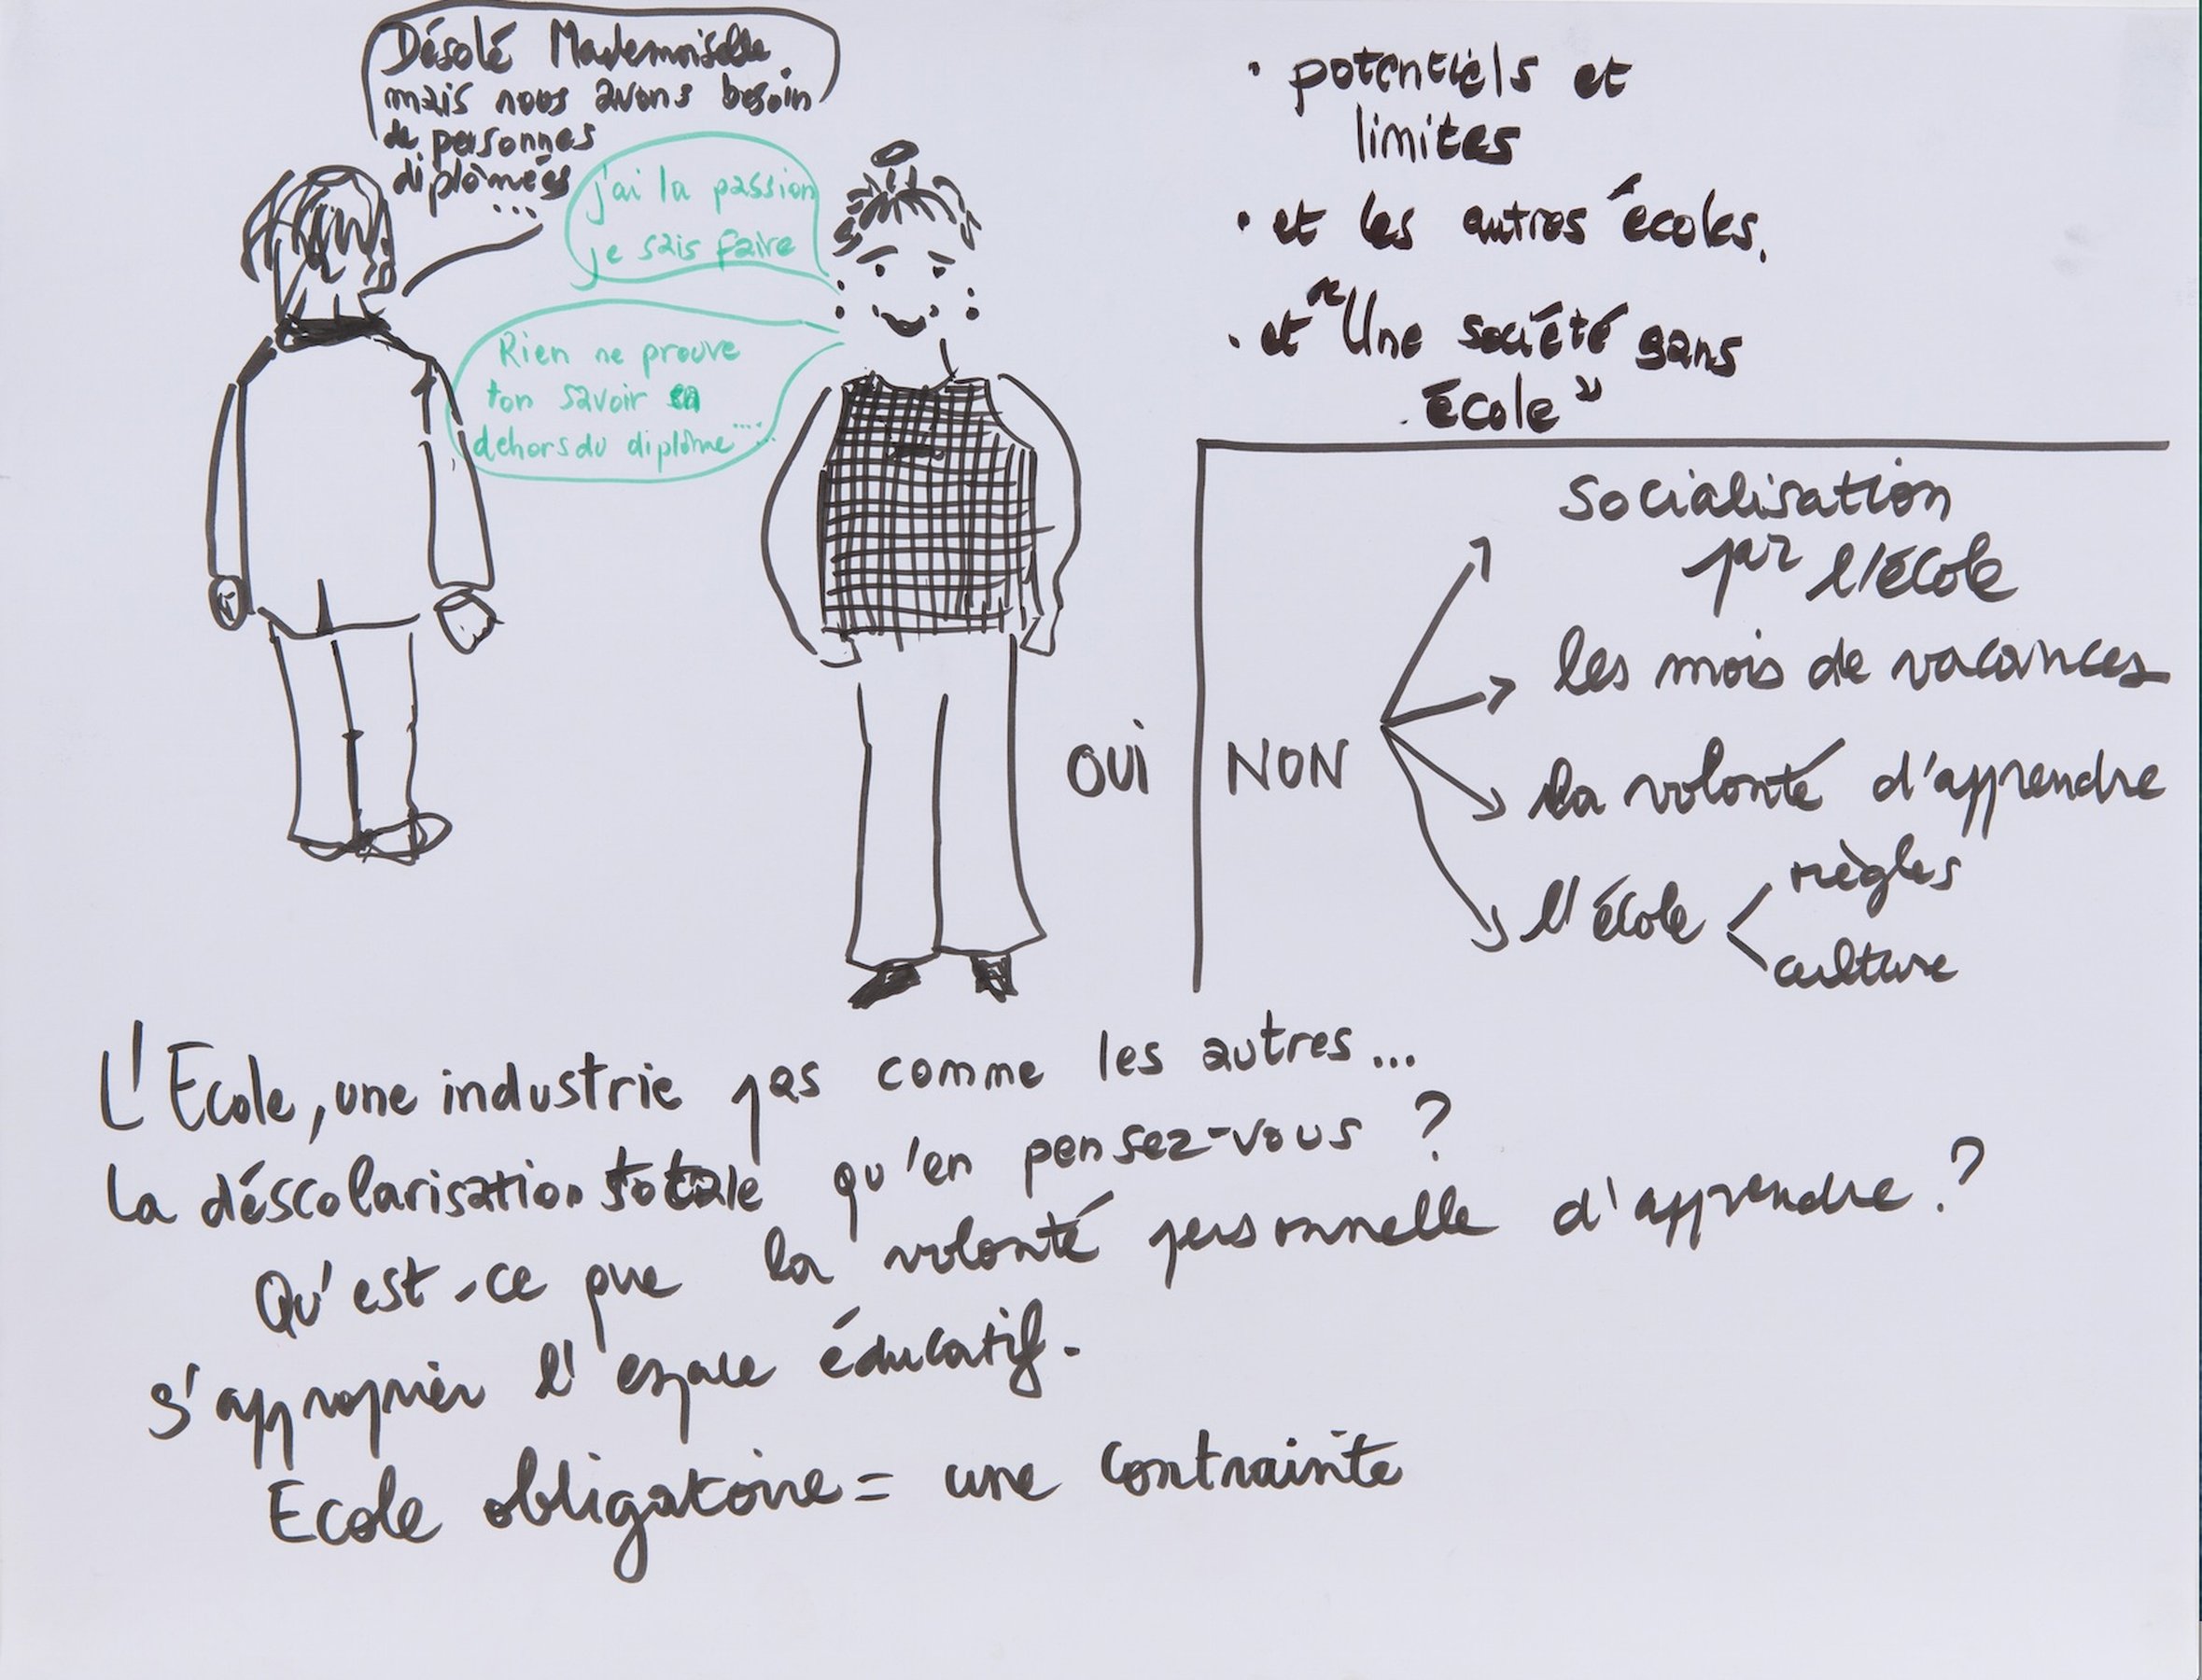 Désolé Mademoiselle
mais nous avons besoin
de personnes
diplômées
...
j'ai la passion
je sais faire
Rien ne prouve
ton savoir en
dehors du diplôme ...
• potentiels et
limites
• et les autres écoles.
• et "Une société sans
École"
OUI
NON
Socialisation
par l'école
les mois de vacances
la volonté d'apprendre
l'école
règles
culture
L'Ecole, une industrie pas comme les autres...
La déscolarisation totale qu'en pensez-vous ?
Qu'est-ce que la volonté personnelle d'apprendre ?
S'approprier l'espace éducatif.
Ecole obligatoire = une contrainte